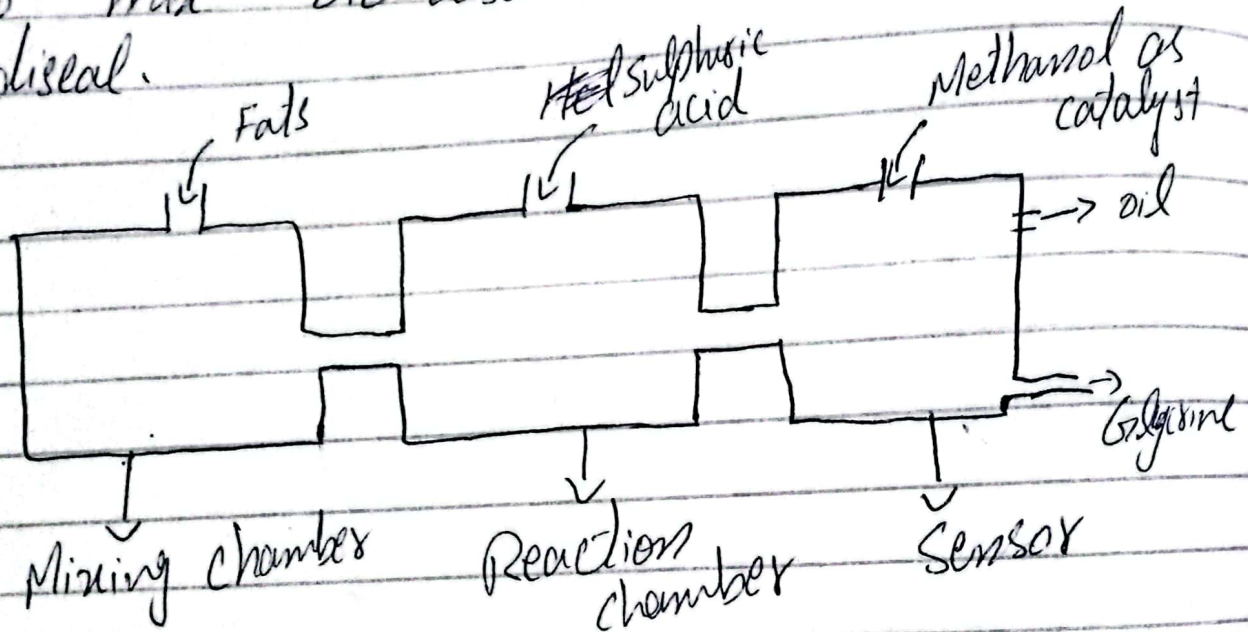 diseal.
Fats
sulphuric
acid
Methanol as
catalyst
oil
Glgerine
Mixing chamber
Reaction
chamber
Sensor